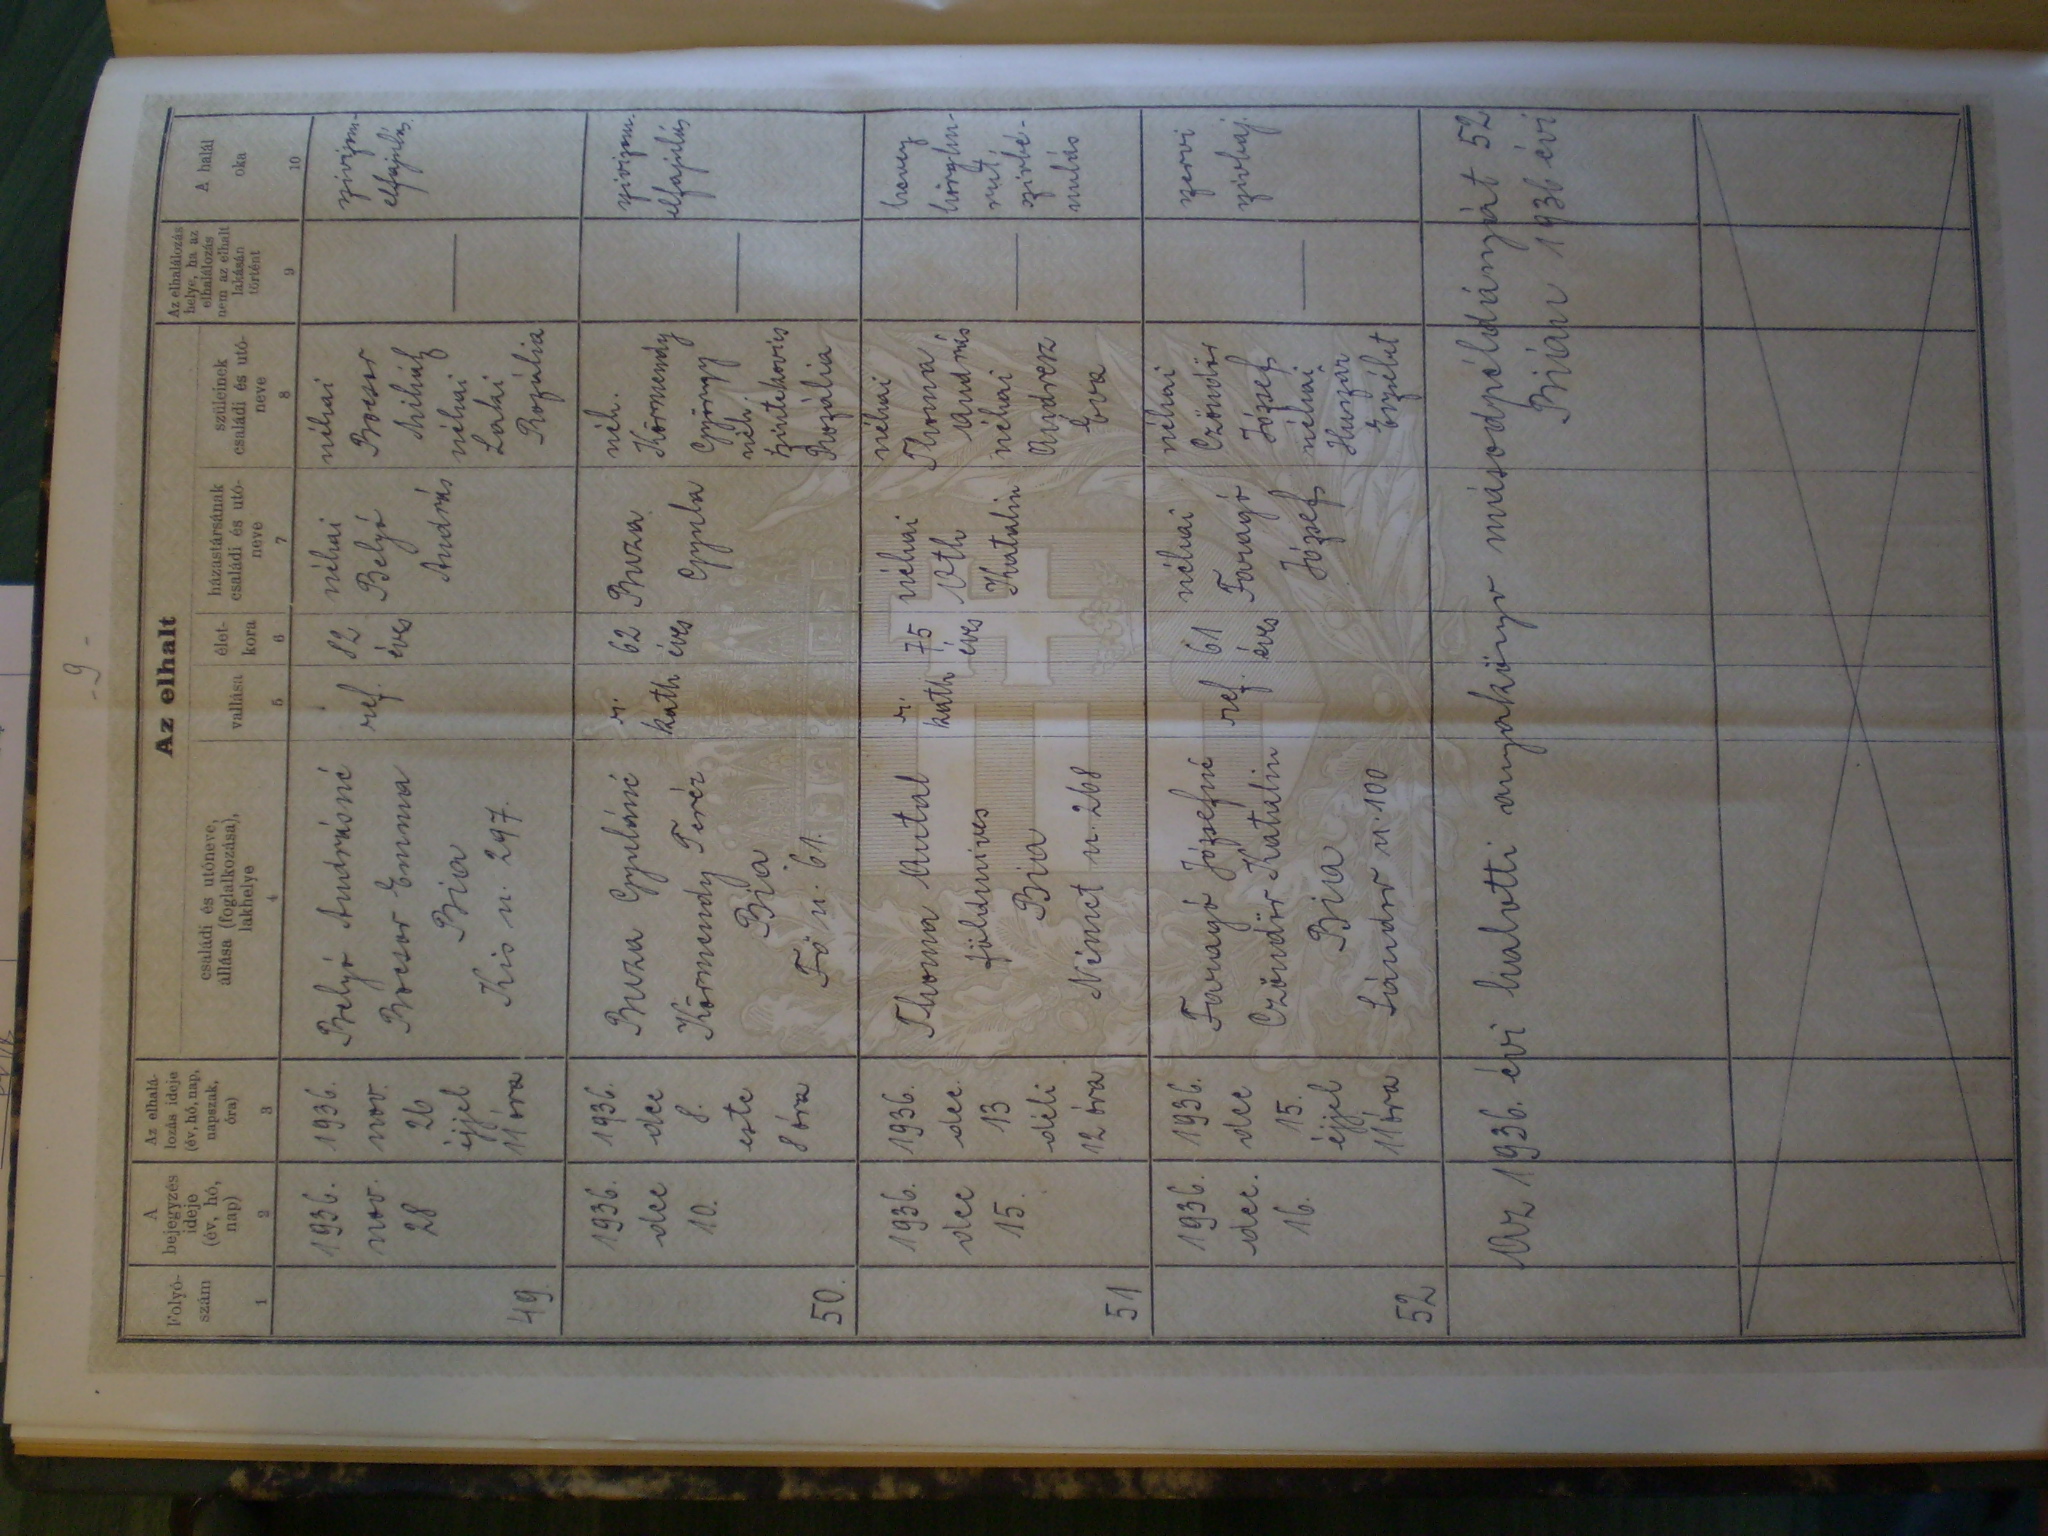 - 9 -
Az elhalt
Folyó-
szám
1
A
bejegyzés
ideje
(év, hó,
nap)
2
Az elhalá-
lozás ideje
(év, hó, nap,
napszak,
óra)
3
családi és utóneve,
állása (foglalkozása),
lakhelye
4
vallása
5
élet-
kora
6
házastársának
családi és utó-
neve
7
szüleinek
családi és utó-
neve
8
Az elhalálozás
helye, ha az
elhalálozás
nem az elhalt
lakásán
történt
9
A halál
oka
10
49
1936.
nov.
28
1936.
nov.
26
éjjel
11 óra
Belyó Andrásné
Bocsor Emma
Bia
Kis u. 297.
ref.
82
éves
néhai
Belyó
András
néhai
Bocsor
Mihály
néhai
Lakai
Rozália
—
szívizom-
elfajulás.
50.
1936.
dec
10.
1936.
dec
8.
este
8 óra
Buza Gyuláné
Körmendy Teréz
Bia
Fő u. 61.
r.
kath
62
éves
Buza
Gyula
néh.
Körmendy
György
néh.
Rozália
—
szívizom.
elfajulás
51
1936.
dec
15.
1936.
dec.
13
déli
12 óra
Thoma Antal
földmíves
Bia
Német u. 268
r.
kath
75
éves
néhai
Oth
Katalin
néhai
Thoma
András
néhai
Andresz
Éva
—
heveny
hörghu-
rut,
szívbé-
nulás
52
1936.
dec.
16.
1936.
dec
15.
éjjel
11 óra
Faragó Józsefné
Czöndör Katalin
Bia
Sándor u. 100
ref.
61
éves
néhai
Faragó
József
néhai
Czöndör
József
néhai
Huszár
Erzsébet
—
szervi
szívbaj.
Az 1936. évi halotti anyakönyv másodpéldányát 52
Bián 1936 évi